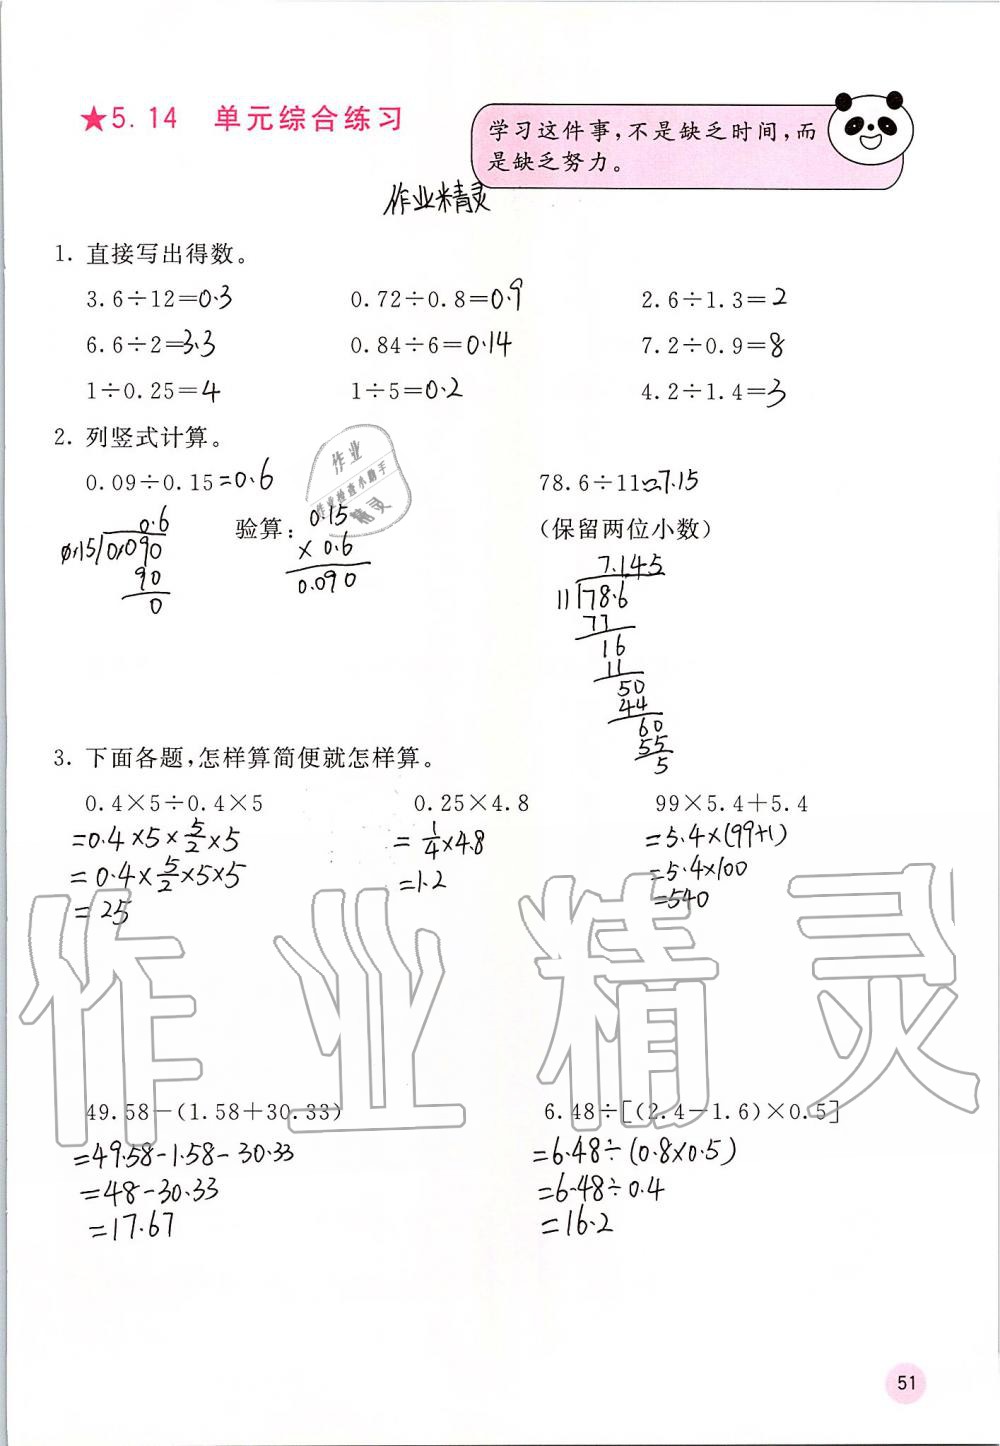 ★5.14 单元综合练习
学习这件事,不是缺乏时间,而
是缺乏努力。
作业精灵
1. 直接写出得数。
3.6÷12=0.3 0.72÷0.8=0.9 2.6÷1.3=2
6.6÷2=3.3 0.84÷6=0.14 7.2÷0.9=8
1÷0.25=4 1÷5=0.2 4.2÷1.4=3
2. 列竖式计算。
作业
作业检查小助手
精灵
0.09÷0.15=0.6 78.6÷11≈7.15
验算: (保留两位小数)
0.6
0.15/0.090
90
0
0.15
× 0.6
0.090
7.145
11/78.6
77
16
11
50
44
60
55
5
3. 下面各题,怎样算简便就怎样算。
0.4×5÷0.4×5 0.25×4.8 99×5.4+5.4
=0.4×5×5/2×5 =1/4×4.8 =5.4×(99+1)
=0.4×5/2×5×5 =1.2 =5.4×100
=25 =540
作业精灵
49.58-(1.58+30.33) 6.48÷[(2.4-1.6)×0.5]
=49.58-1.58-30.33 =6.48÷(0.8×0.5)
=48-30.33 =6.48÷0.4
=17.67 =16.2
51